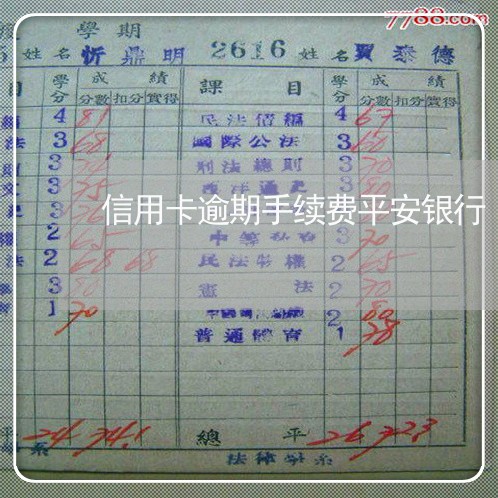 7788.com
學期
姓名 忻鼎明 2616 姓名 賈泰德
目 學分 成績 課目 學分 成績
分數 扣分 實得 分數 扣分 實得
4 81 民法債編 4 67
法 3 68 國際公法 3 60
3 刑法總則 3 70
3 75 西洋通史 3 80
信用卡逾期手续费平安银行
2 65 3 70
法 2 68 68 民法物權 2 65
3 80 憲法 2 70
1 70 2 80
普通體育 1 78
平 24 74.1 總平 26 72.3
系 法律學系